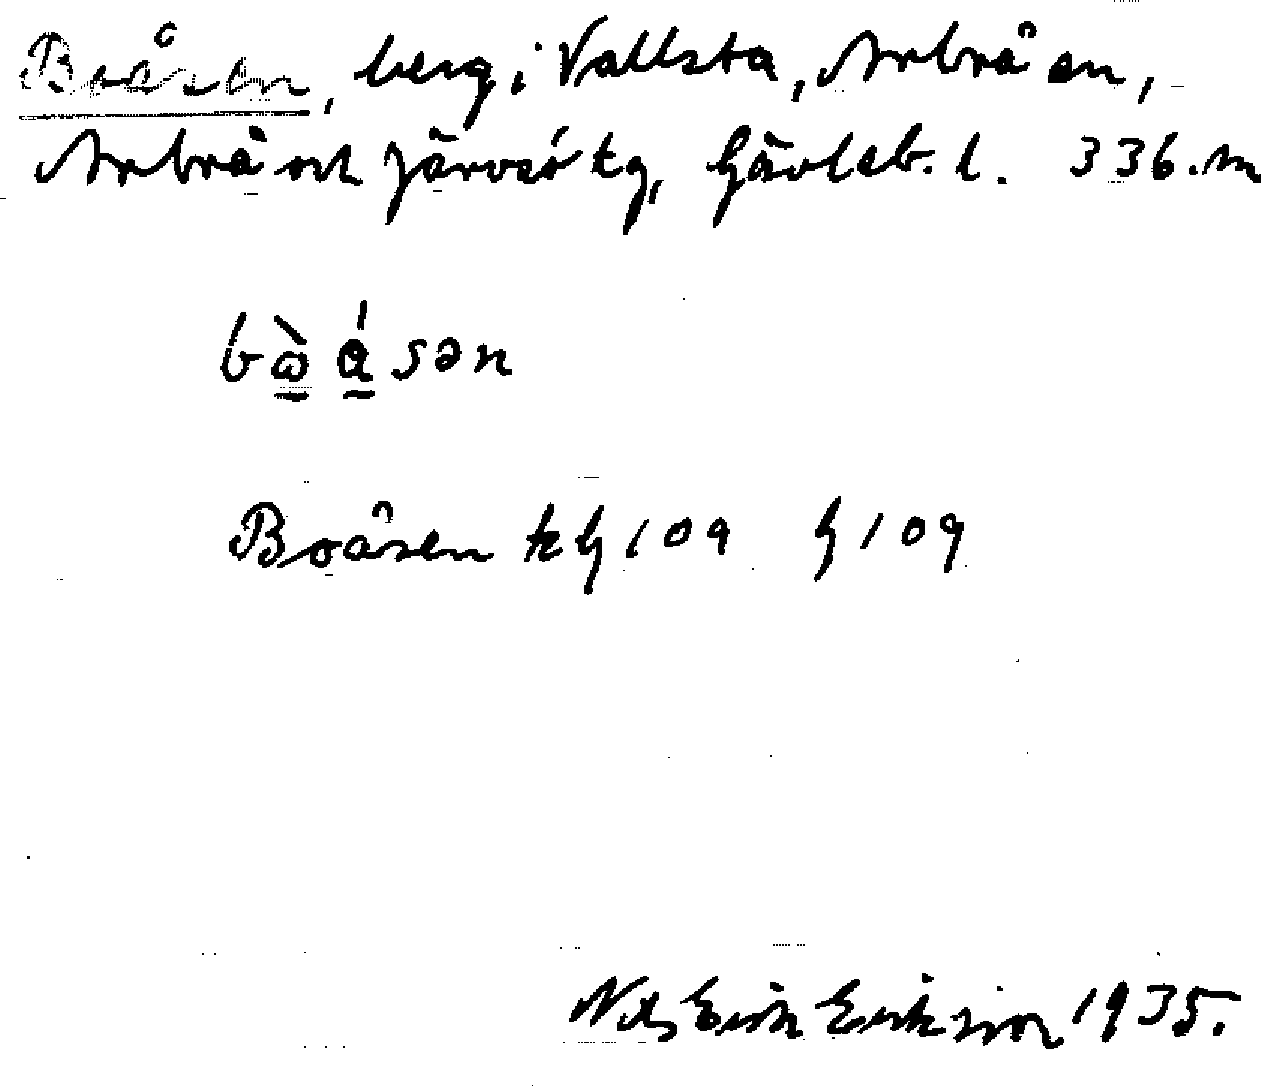 Boåsen, berg i Vallsta, Arbrå sn,
Arbrå och Järvsö tg, Gävleb. l. 336.m
bὼ ásən
Boåsen tk G 109 G 109
Nils Erik Eriksson 1935.